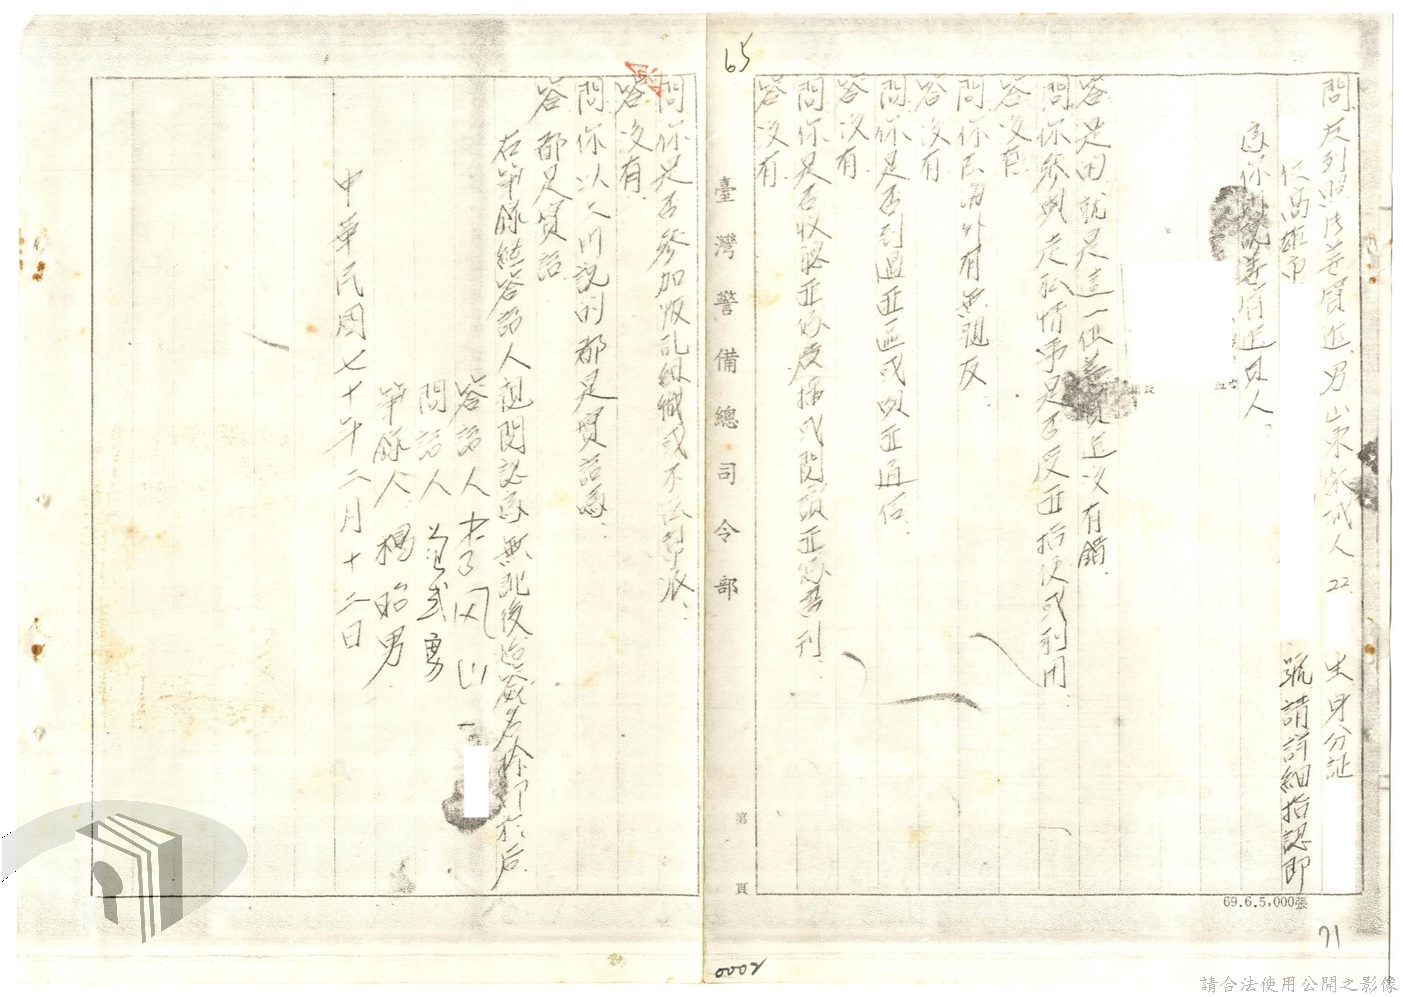 65
問 左列照片姜貿進 男 山東 人 22 生身分証
住高雄市 號請詳細指認即
為你所說姜貿進其人。
答 是的就是這一位姜貿進沒有錯。
問 你參與走私情事是否受匪指使或利用
答 沒有
問 你在海外有無親友
答 沒有
問 你是否到過匪區或與匪通信。
答 沒有
問 你是否收聽匪偽廣播或閱讀匪偽書刊
答 沒有
臺灣警備總司令部
第 頁
問 你是否參加叛亂組織或不法幫派、
答 沒有
問 你以上所說的都是實話嗎、
答 都是實話、
右筆錄經答話人親閱認為無訛後始簽名捺印於后
答話人 李风山
問話人 武勇
筆錄人 楊昭男
中華民國七十年二月十二日
69.6.5,000張
71
0002
請合法使用公開之影像